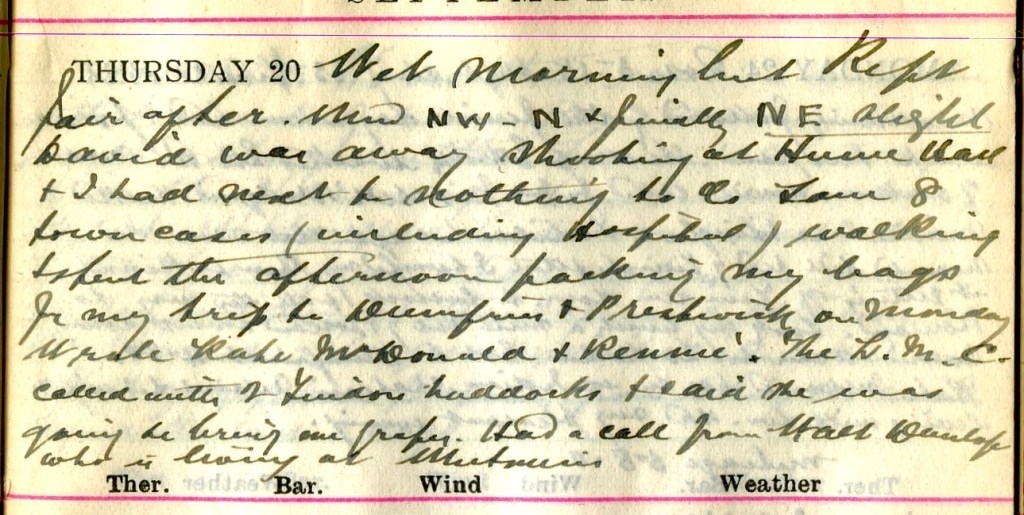 SEPTEMBER
THURSDAY 20 Wet morning but Kept
fair after. Wind NW - N & finally NE slight
David was away shooting at Hume Hall
& I had next to nothing to do Saw 8
town cases (including Hospital) walking
& spent the afternoon packing my bags
for my trip to Dumfries & Prestwick on Monday
Wrote Kate McDonald & Rennie. The L. M. C.
called with 2 Findon haddocks & said she was
going to bring me grapes. Had a call from Walt Dunlop
who is living at
Ther. Bar. Wind Weather